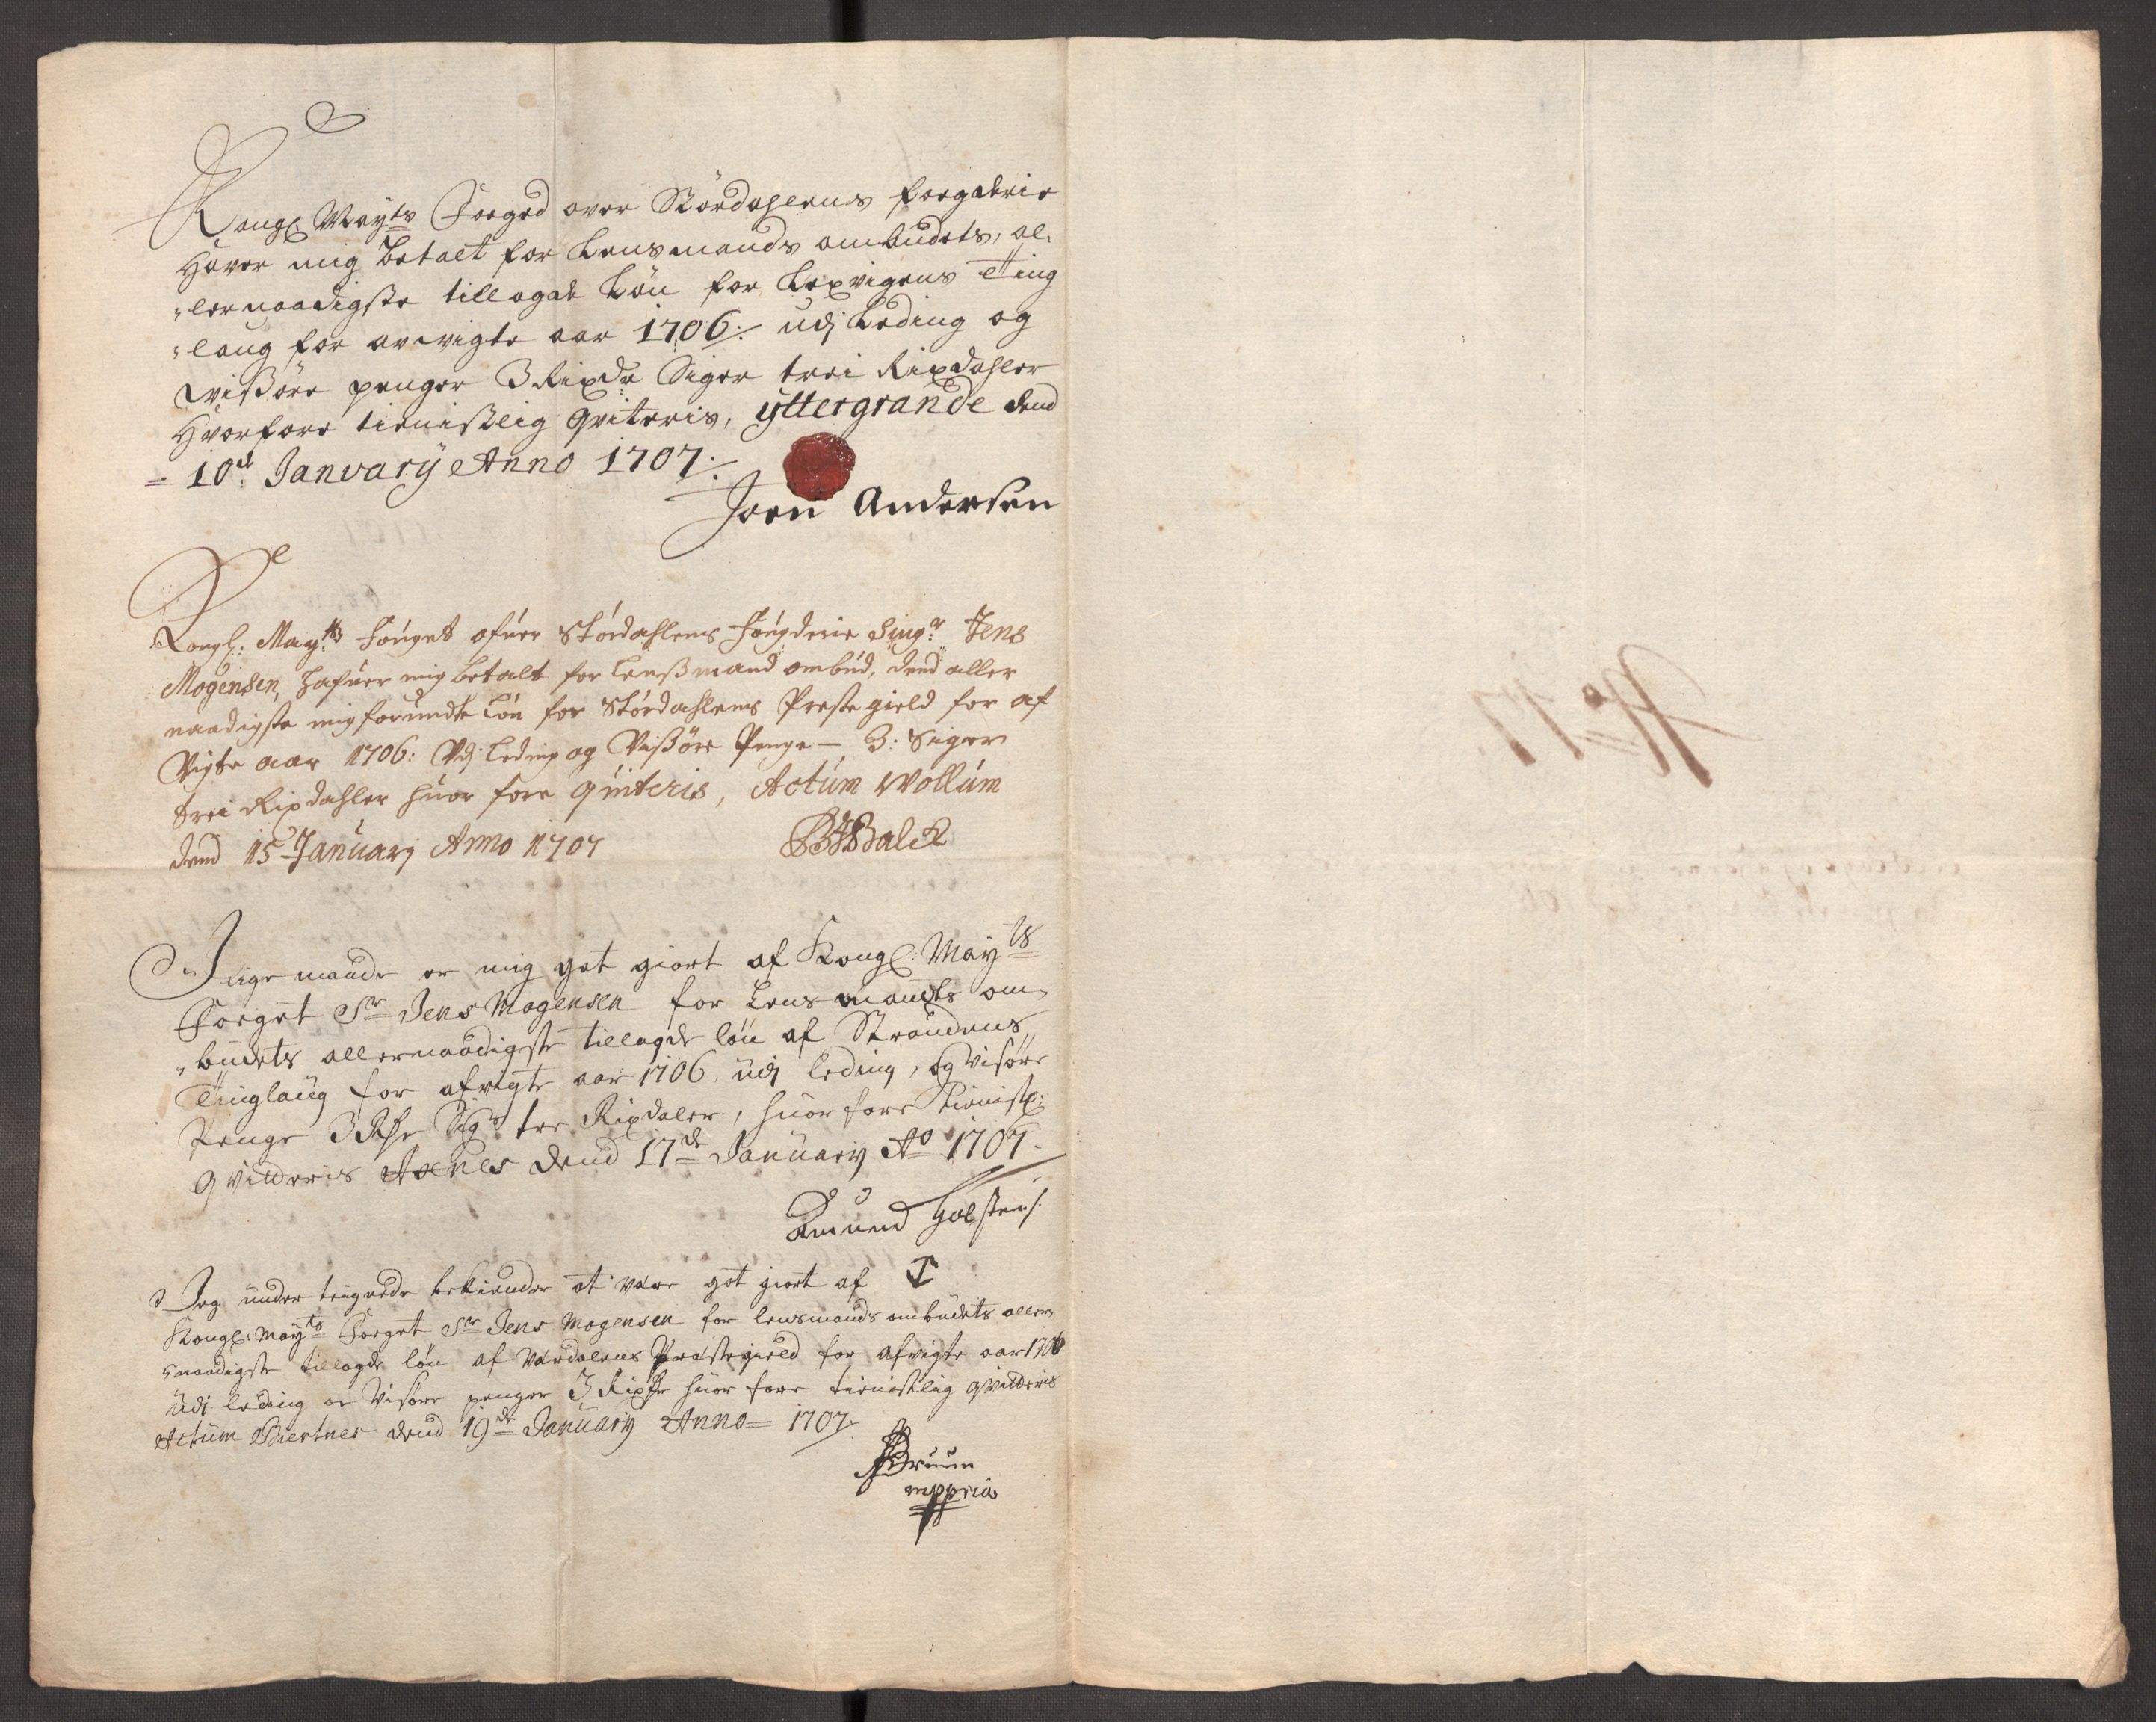 Kongl. Mayts Foeged over Stördahlens foegderie
Haver mig betalt for Lensmands ombudets, al,
„lernaadigste tillagde Lön for Lexvigens Ting
„laug for avvigte aar 1706 ./. udj Leding og
Wissöre penger 3 Rixdr Siger trei Rixdahler
Hvorfore tienistlig qviteris, Yttergrande dend
= 10de January Anno 1707 ./.
Joen Andersen
Kongl: Mayts Fouget ofuer Stördahlens Fougderie Singr: Jens
Mogensen, Hafuer mig betalt for Lenssmand ombud, dend aller
naadigste mig forundte Lön for Stördahlens Prestegield for af
Vigte aar 1706: Vdj Leding og Vissöre Penge — 3: Siger
trei Rixdahler huor fore quiteris, Actum Wollum
dend 15 January Anno 1707
Balck
J lige maade er mig got giort af Kongl: Mayts
Foeget Sr Jens Mogensen for Lensmands om„
„budets allernaadigste tillagde lön af Strandens
Tinglaug for afvigte aar 1706 udj leding, og visöre
Penge 3 Rdr Sigr tre Rixdaler, huor fore tienistl:
qvitteris Axnes dend 17de January Ao 1707.
Amund Holstens:
Jeg under teignede bekiender at være got giort af
Kongl: Mayts Foeget Sr Jens Mogensen for lensmands ombudets aller„
„naadigste tillagde lön af Værdalens Præstegield for afvigte aar 1706
udj leding oc Visöre penger 3 Rixdr huor fore tienistlig qvitteris
Actum Biertnes dend 19de January Anno = 1707 ./.
Bruun
mppria
No 17.